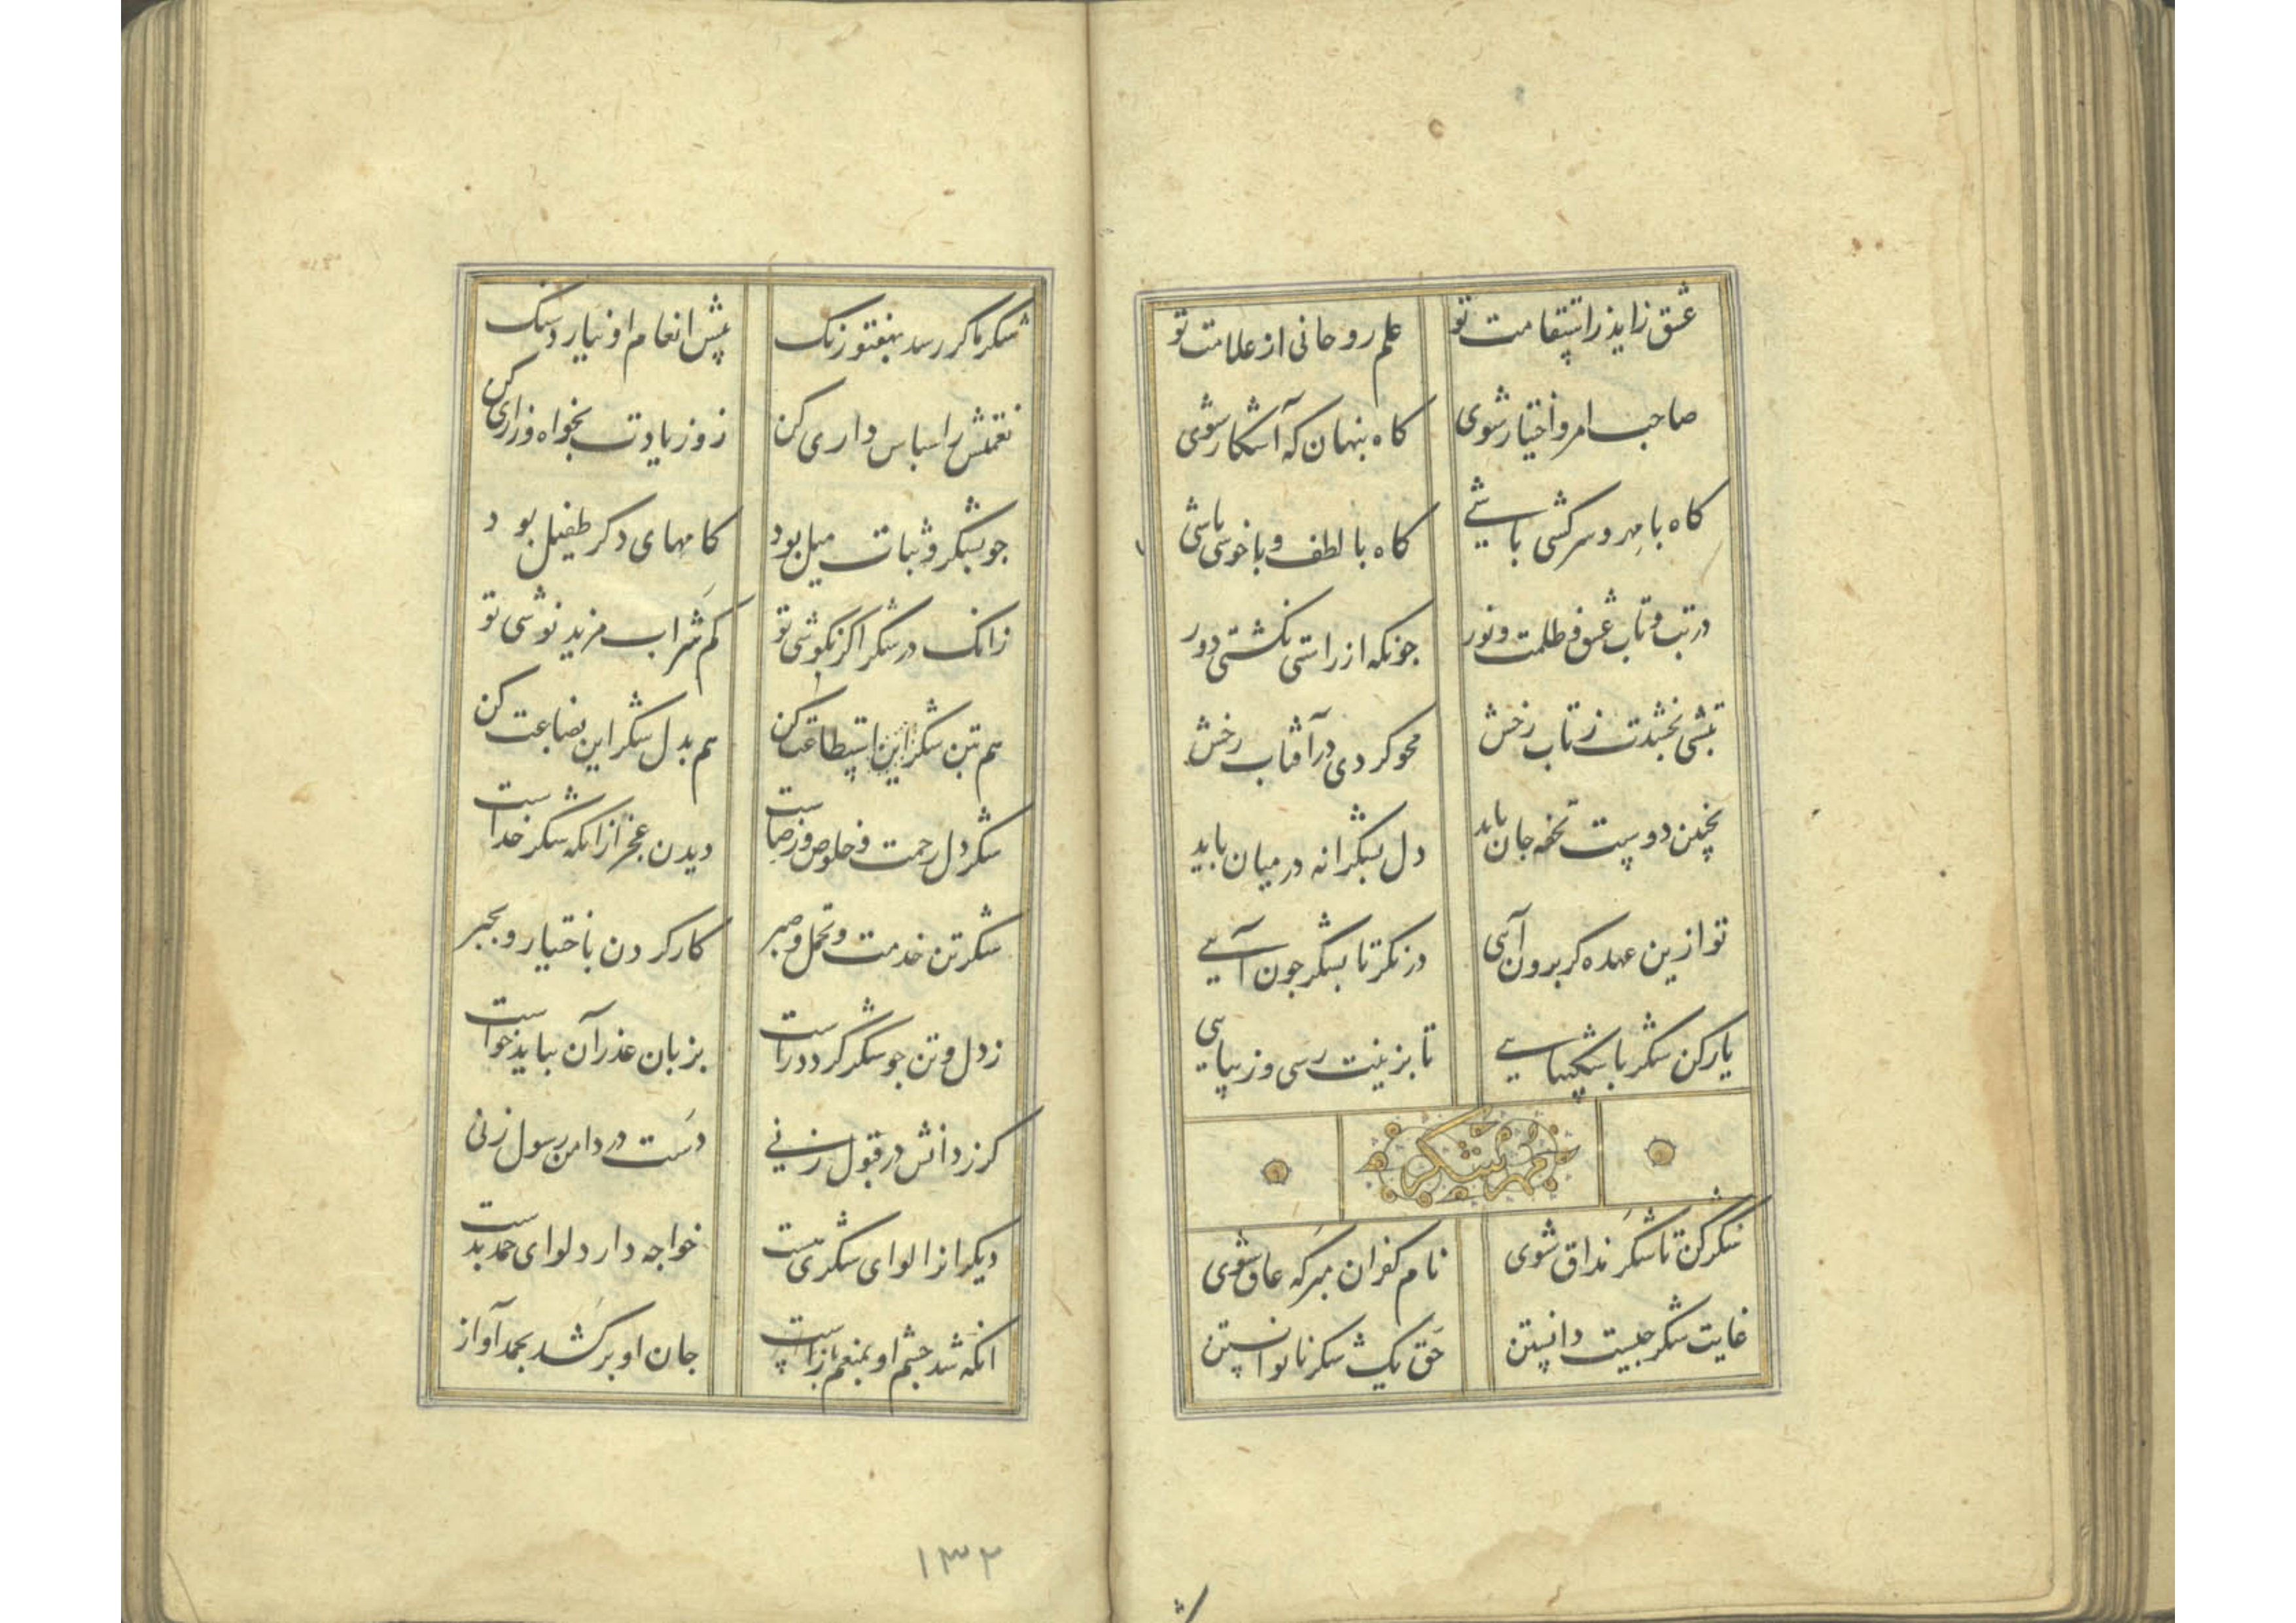 عشق زاید ز استقامت تو علم روحانی از علامت تو
صاحب امر و اختیار شوی کاه پنهان که آشکار شوی
کاه با مهر و سرکشی باشی کاه با لطف و با خوشی باشی
در تب و تاب عشق و ظلمت و نور جونکه از راستی نکشتی دور
تبشی بخشدت ز تاب رخش محو کردی در آفتاب رخش
بخچنین دوست تحفه جان باید دل بشکرانه در میان باید
تو ازین عهده کر برون آیی در نکر تا بشکر جون آیی
یار کن شکر با شکیبایی تا بزینت رسی و زیبایی
در شکر
شکر کن تا شکر مذاق شوی نام کفران مبر که عاق شوی
غایت شکر جیست دانستن حق یک شکر نا توانستن
شکر ما کر رسد بهفتورنک پیش انعام او نیارد سنک
نعمتش را سپاس داری کن زو زیادت بخواه و زاری کن
جو بشکر و ثبات میل بود کامهای دکر طفیل بود
زانک در شکر اکر نکوشی تو کم شراب مزید نوشی تو
هم بتن شکر این استطاعت کن هم بدل شکر این بضاعت کن
شکر دل رحمت و خلوص و رضاست دیدن عجز از انکه شکر خداست
شکر تن خدمت و تحمل و صبر کار کردن باختیار و بجبر
ز دل و تن جو شکر کردد راست بزبان عذر آن بباید خواست
کر ز دانش در قبول زنی دست در دامن رسول زنی
دیکر انرا لوای شکری هست خواجه دارد لوای حمد بدست
انکه شد جشم او بمنعم باز جان او بر کشد بحمد آواز
۱۳۲